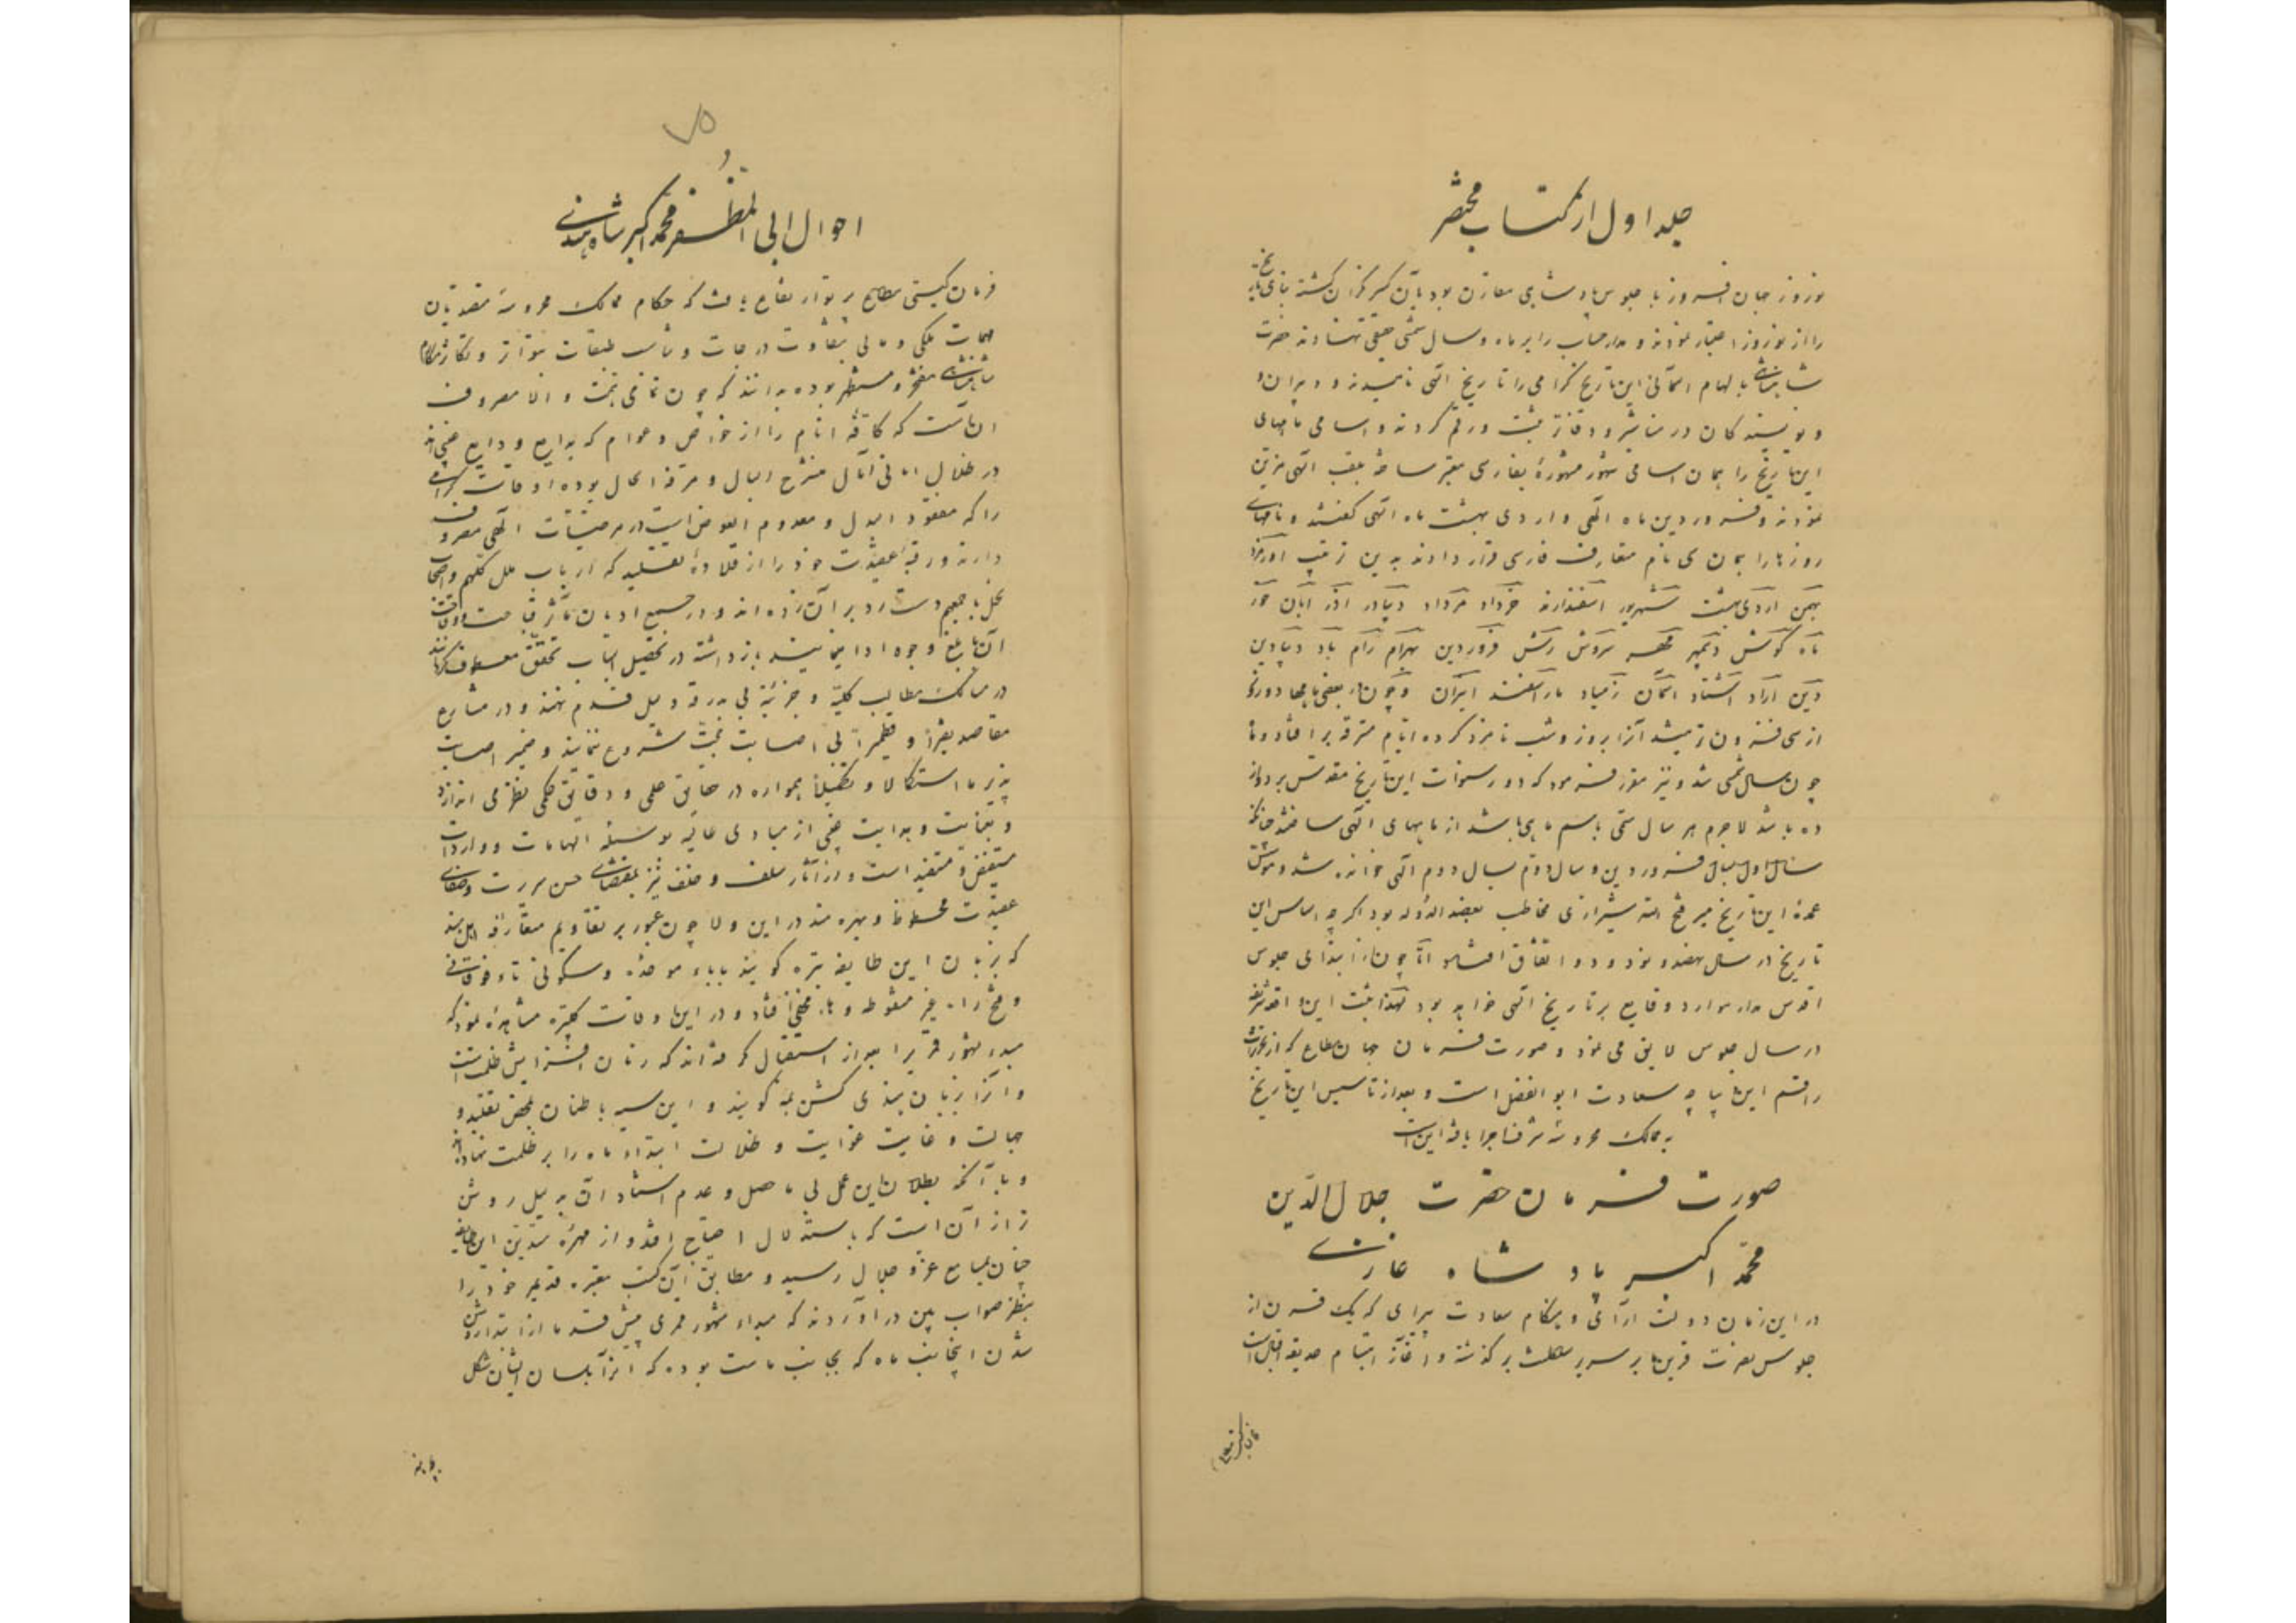 جلد اول از کتاب مختصر
نوروز جهان افروز با جلوس پادشاهی مقارن بود بآن کسر گران گشته بنای تاریخ
را از نوروز اعتبار نمودند و مدار حساب را بر ماه و سال شمسی حقیقی نهادند حضرت
شاهنشاهی بالهام آسمانی این تاریخ گرامی را تاریخ الهی نامیدند و دبیران و
نویسندگان در مناشیر و دفاتر ثبت و رقم کردند و اسامی ماههای
این تاریخ را همان اسامی شهور مشهورۀ بفارسی معتبر ساخته بلقب الهی مزین
نمودند و فروردین ماه الهی و اردی بهشت ماه الهی گفتند و نامهای
روزها را همان سی نام متعارف فارسی قرار دادند بدین ترتیب اورمزد
بهمن اردی بهشت شهریور اسفندارمذ خرداد مرداد دیبادر آذر آبان خور
ماه گوش دیبمهر مهر سروش رشن فروردین بهرام رام باد دیبادین
دین ارد اشتاد آسمان زمیاد ماراسفند انیران و چون در بعضی ماهها دو روز
از سی افزون تر میشد آنرا بروز و شب نامزد کرده ایام مسترقه بر افتاد و تا
چون سال شمسی شد و نیز مقرر فرمود که دور سنوات این تاریخ مقدس بر دوازده
ده باشد لاجرم هر سال مسمی باسم ماهی باشد از ماههای الهی ساختند چنانکه
سال اول بسال فروردین و سال دوم بسال دوم الهی خوانده شد و موسس
عمدۀ این تاریخ میر فتح الله شیرازی مخاطب بعضد الدوله بود اگر چه اساس این
تاریخ در سال نهصد و نود و دو اتفاق افتاد اما چون از ابتدای جلوس
اقدس مدار موارد وقایع بر تاریخ الهی خواهد بود لهذا ثبت این واقعه شریفه
در سال جلوس لایق می نمود و صورت فرمان جهان مطاع که از تحریرات
راقم این دیباچه سعادت ابو الفضل است و بعد از تاسیس این تاریخ
به ممالک محروسه شرف اجرا یافته این است
صورت فرمان حضرت جلال الدین
محمد اکبر پادشاه غازی
در این زمان دولت آرای و هنگام سعادت پیرای که یک قرن از
جلوس نصرت قرین ما بر سریر سلطنت برگذشته و آغاز ابتسام حدیقه اقبال است
احوال ابی المظفر محمد اکبر شاه هندی
فرمان گیتی مطاع پرتو ارتفاع یافت که حکام ممالک محروسه متصدیان
مهمات ملکی و مالی بتفاوت درجات و تناسب طبقات بتواتر و تکاثر مکارم
شاهنشاهی مفتخر و مستظهر بوده بدانند که چون تمامی همت والا مصروف
آنست که کافۀ انام را از خواص و عوام که بدایع ودایع
در ظلال امانی آمال منشرح البال و مرفه الحال بوده اوقات گرامی
را که مفقود البدل و معدوم العوض است در مرضیات الهی مصروف
دارند و رقبۀ عقیدت خود را از قلادۀ تقلید که ارباب ملل کلهم و اصحاب
نحل باجمعهم دست رد بر آن زده اند و در جمیع ادیان
آن بابلغ وجوه ادا مینمایند بازداشته در تحصیل اسباب تحقق معطوف گردانند
در مسالک مطالب کلیه و جزئیه بی بدرقه دلیل قدم ننهند و در مشارع
مقاصد نقیراً و قطمیراً بی اصابت حجت شروع ننمایند و ضمیر اصابت
پذیر ما استکمالا و تکمیلاً همواره در حقایق علمی و دقایق حکمی نظر می اندازد
و بعنایت و هدایت از مبادی عالیه بوسیلۀ الهامات و واردات
مستفیض و مستفید است و از آثار سلف و خلف نیز بمقتضای حسن سریرت و صفای
عقیدت محظوظ و بهره مند در این ولا چون عبور بر تقاویم متعارفه اهل هند
که بزبان این طایفه پتره گویند بباء موحده و سکون تاء فوقانی
و فتح راء غیر منقوطه و هاء مختفی افتاد و در این اوقات مشاهده نمود که
مبدء شهور قمری را بعد از استقبال گرفته اند که زمان افزایش ظلمت است
و آنرا بزبان هندی کشن پچه گویند و این سیه باطنان بمحض تقلید و
جهالت و غایت غوایت و ضلالت ابتداء ماه را بر ظلمت نهاده اند
و با آنکه بطلان این عمل بی ماحصل و عدم استناد آن به دلیل روشن
تر از آن است که باستدلال احتیاج افتد و از مهرۀ متدین این طایفه
چنان بمسامع عز و جلال رسید و مطابق آن کتب معتبره قدیم خود را
بنظر صواب بین در آوردند که مبداء شهور قمری پیش قدما از ابتدا روشن
شدن آنجانب ماه که بجانب ماست بوده که آنرا بلسان ایشان شکل